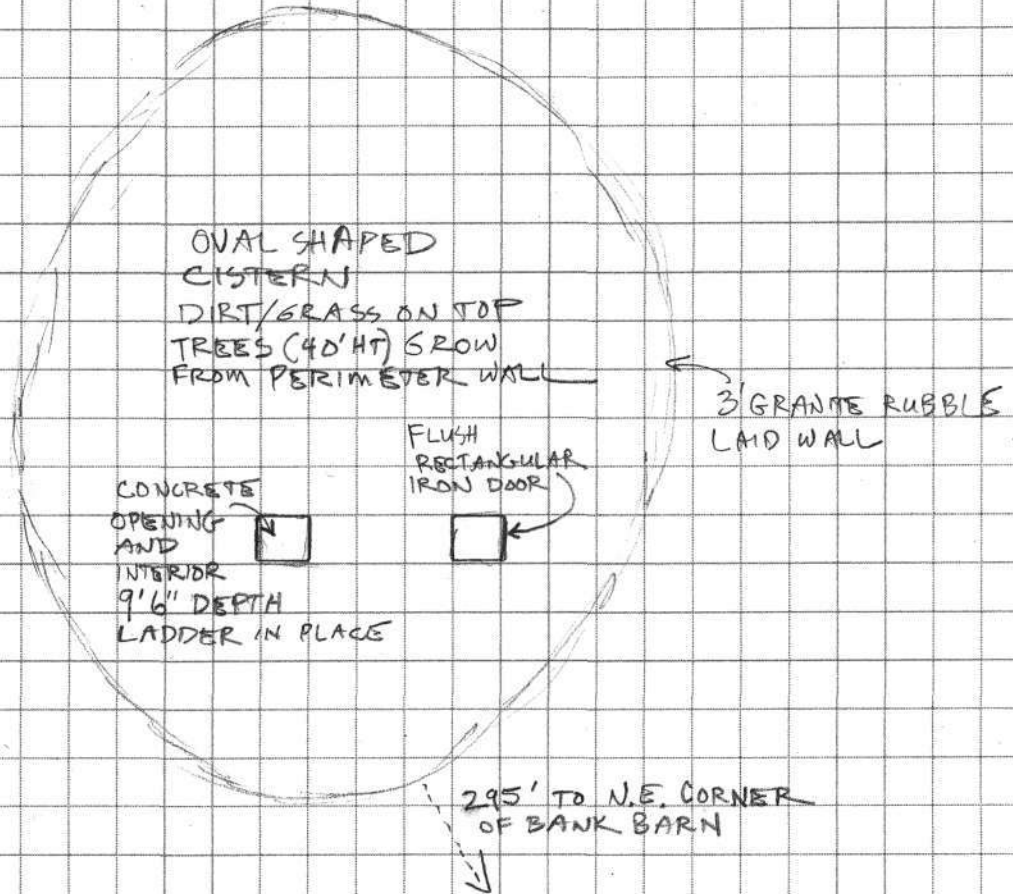 OVAL SHAPED
CISTERN
DIRT/GRASS ON TOP
TREES (40' HT) GROW
FROM PERIMETER WALL
3' GRANITE RUBBLE
LAID WALL
FLUSH
RECTANGULAR
IRON DOOR
CONCRETE
OPENING
AND
INTERIOR
9'6" DEPTH
LADDER IN PLACE
295' TO N.E. CORNER
OF BANK BARN